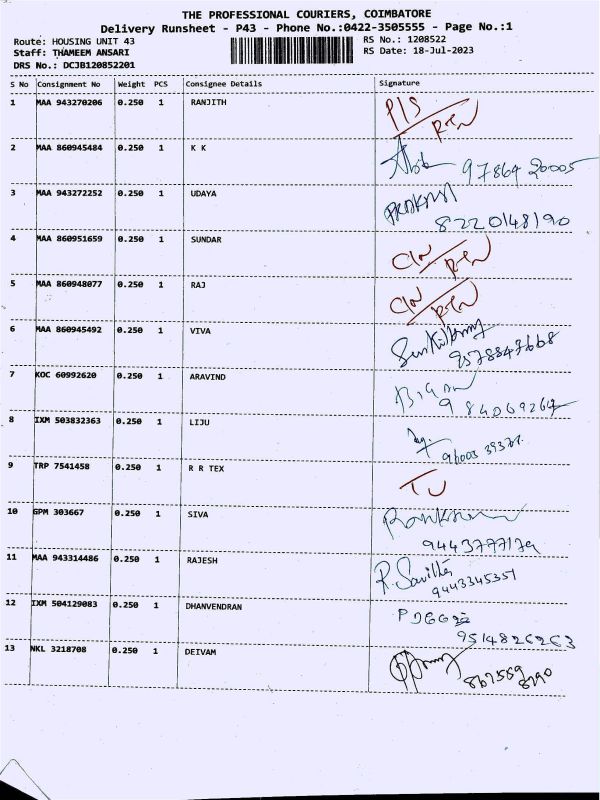 THE PROFESSIONAL COURIERS, COIMBATORE
Delivery Runsheet - P43 - Phone No.:0422-3505555 - Page No.:1
Route: HOUSING UNIT 43 RS No.: 1208522
Staff: THAMEEM ANSARI RS Date: 18-Jul-2023
DRS No.: DCJB120852201
S No Consignment No Weight PCS Consignee Details Signature
1 MAA 943270206 0.250 1 RANJITH P/S
RTN
2 MAA 860945484 0.250 1 K K
97864 20005
3 MAA 943272252 0.250 1 UDAYA
8220148190
4 MAA 860951659 0.250 1 SUNDAR
RTN
5 MAA 860948077 0.250 1 RAJ
RTN
6 MAA 860945492 0.250 1 VIVA
9578847668
7 KOC 60992620 0.250 1 ARAVIND
8 IXM 503832363 0.250 1 LIJU
9 TRP 7541458 0.250 1 R R TEX
10 GPM 303667 0.250 1 SIVA
11 MAA 943314486 0.250 1 RAJESH R. Savitha
9443345351
12 IXM 504129083 0.250 1 DHANVENDRAN
9514826263
13 NKL 3218708 0.250 1 DEIVAM